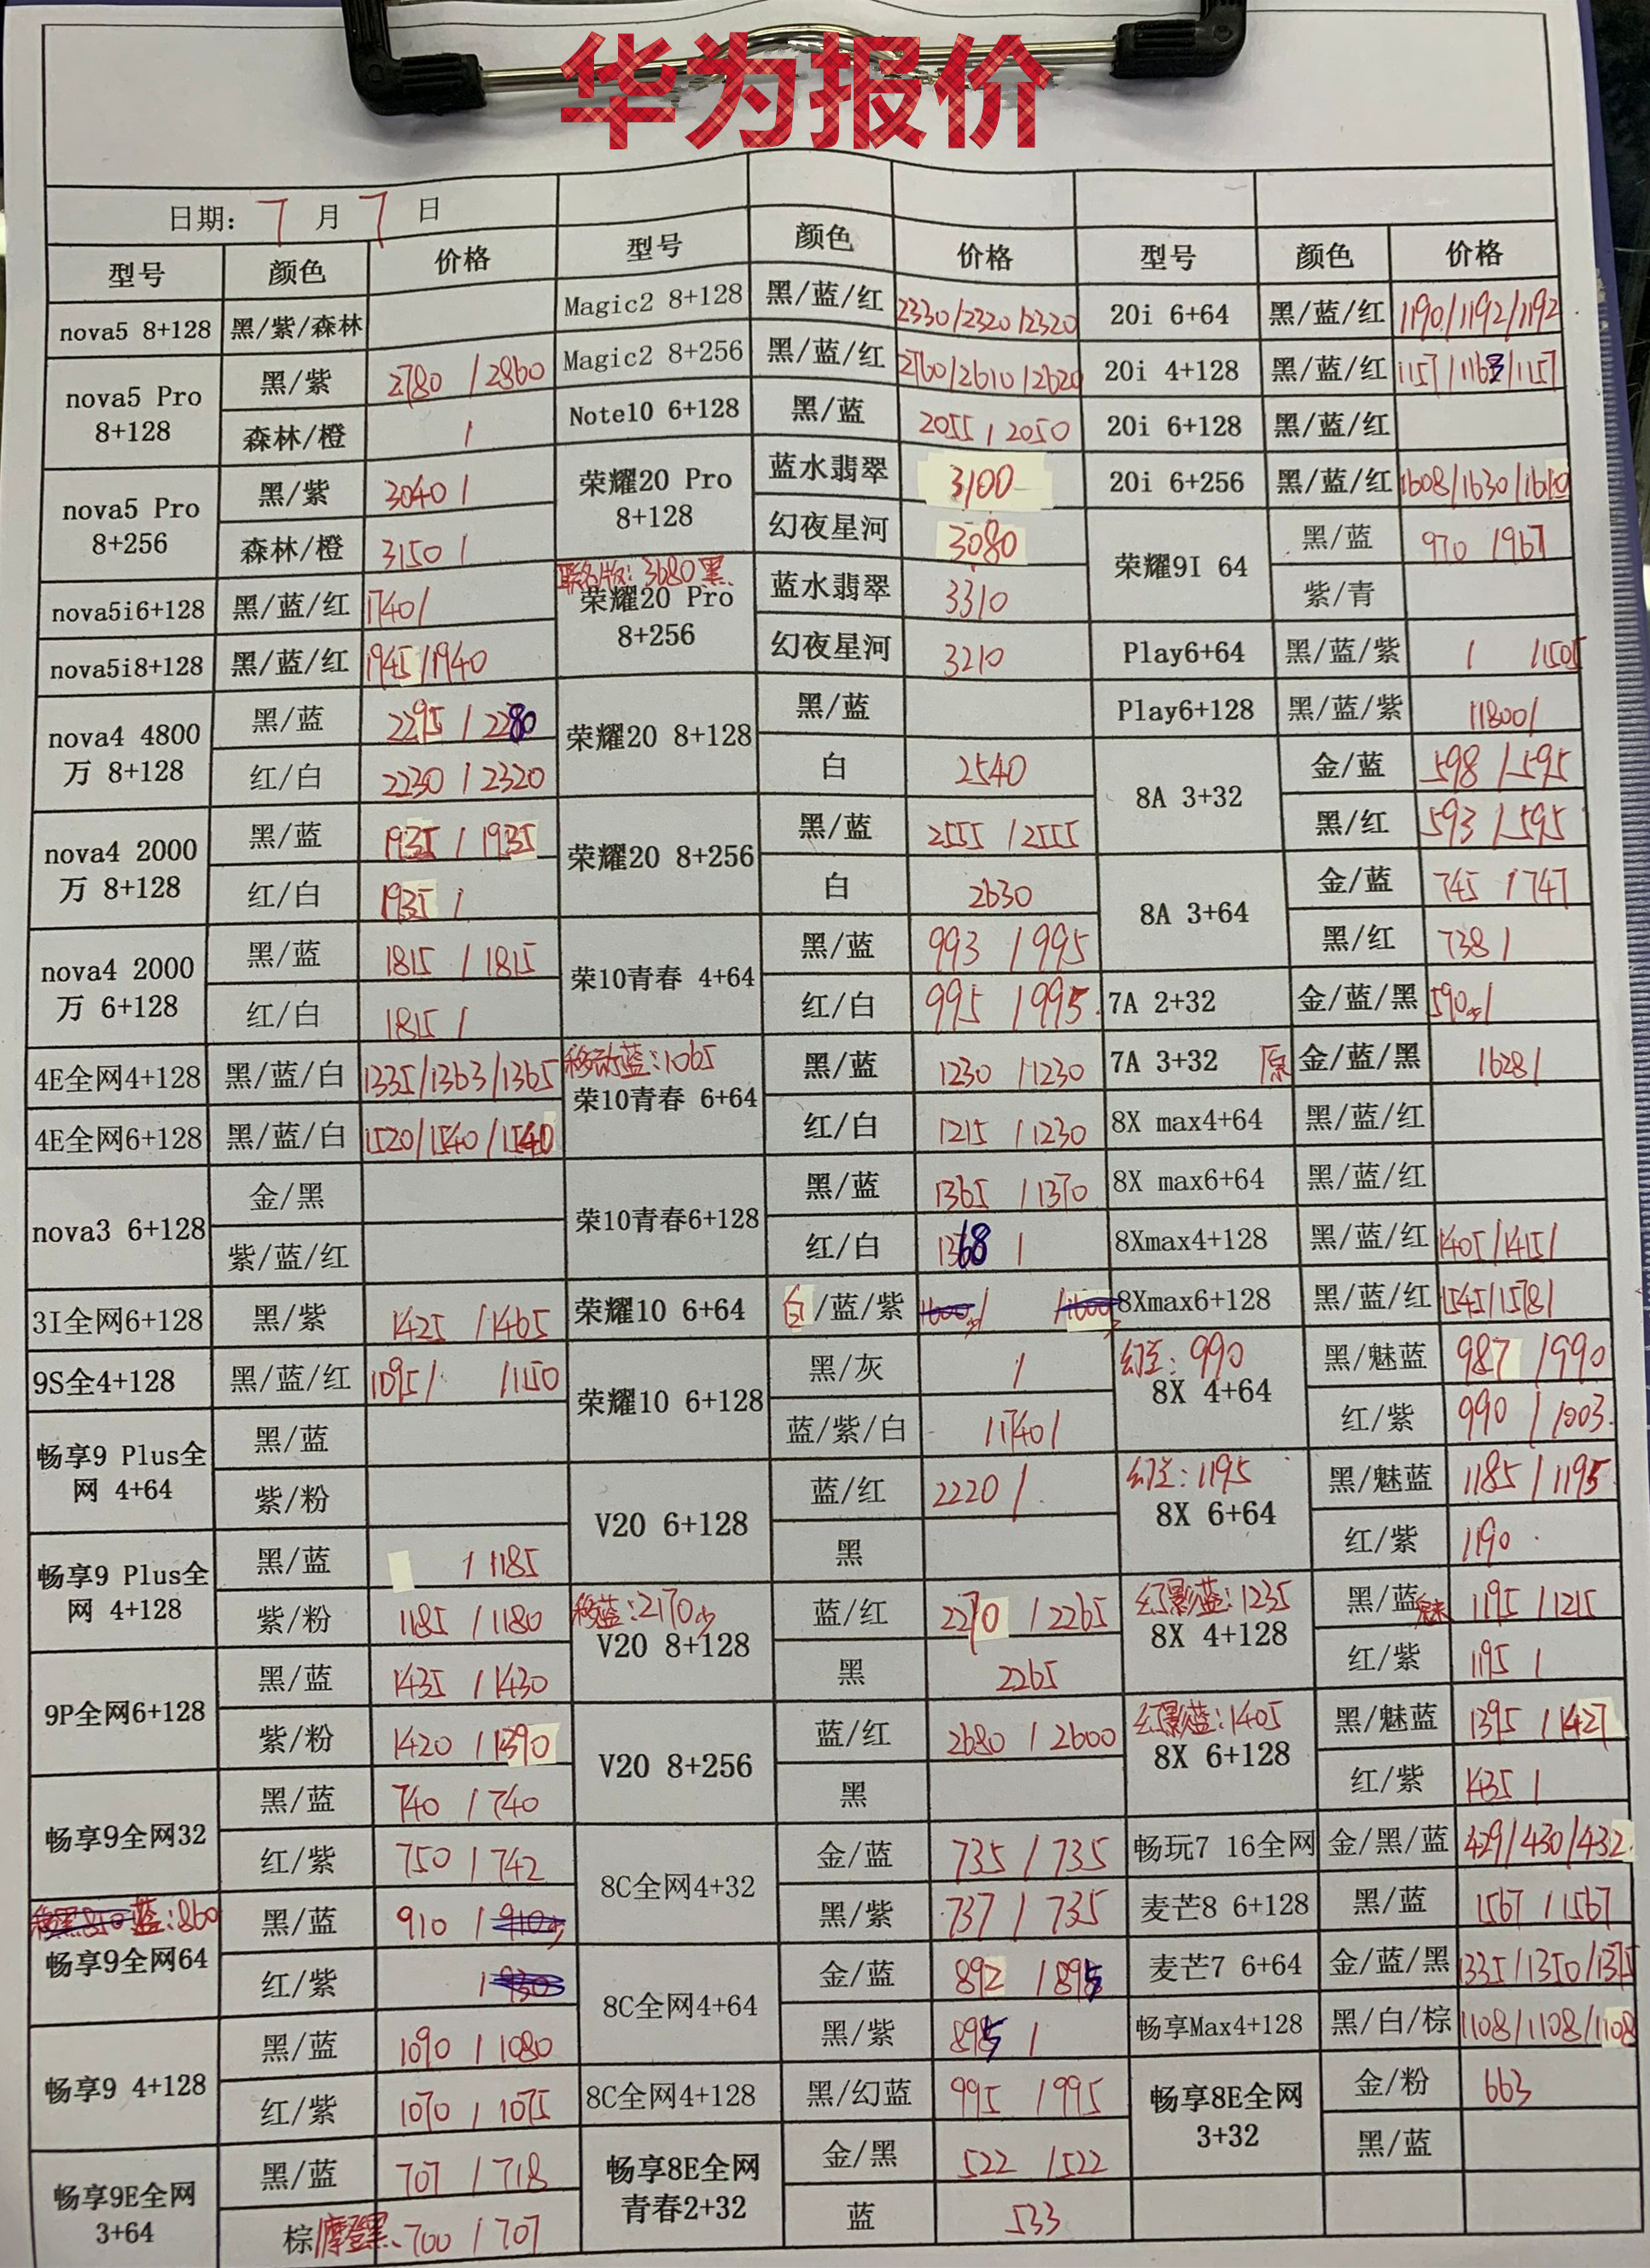 华为报价
日期: 7 月 7 日
型号 颜色 价格 型号 颜色 价格 型号 颜色 价格
nova5 8+128 黑/紫/森林
nova5 Pro 8+128 黑/紫 2780 / 2860
森林/橙 /
nova5 Pro 8+256 黑/紫 3040 /
森林/橙 3150 /
nova5i6+128 黑/蓝/红 1740/
nova5i8+128 黑/蓝/红 1945/1940
nova4 4800万 8+128 黑/蓝 2295 / 2280
红/白 2230 / 2320
nova4 2000万 8+128 黑/蓝 1935 / 1935
红/白 1935 /
nova4 2000万 6+128 黑/蓝 1815 / 1815
红/白 1815 /
4E全网4+128 黑/蓝/白 1335/1363/1365
4E全网6+128 黑/蓝/白 1520/1540/1540
nova3 6+128 金/黑
紫/蓝/红
3I全网6+128 黑/紫 1425 / 1465
9S全4+128 黑/蓝/红 1095/ /1150
畅享9 Plus全网 4+64 黑/蓝
紫/粉
畅享9 Plus全网 4+128 黑/蓝 / 1185
紫/粉 1185 / 1180
9P全网6+128 黑/蓝 1435 / 1430
紫/粉 1420 / 1390
畅享9全网32 黑/蓝 740 / 740
红/紫 750 / 742
蓝:860
畅享9全网64 黑/蓝 910 / 910
红/紫 / 930
畅享9 4+128 黑/蓝 1090 / 1080
红/紫 1070 / 1075
畅享9E全网 3+64 黑/蓝 707 / 718
棕/摩登黑 700 / 707
Magic2 8+128 黑/蓝/红 2330/2320/2320
Magic2 8+256 黑/蓝/红 2760/2610/2620
Note10 6+128 黑/蓝 2055 / 2050
荣耀20 Pro 8+128 蓝水翡翠 3100
幻夜星河 3080
联名版: 3680 黑
荣耀20 Pro 8+256 蓝水翡翠 3310
幻夜星河 3210
荣耀20 8+128 黑/蓝
白 2540
荣耀20 8+256 黑/蓝 2555 / 2555
白 2630
荣10青春 4+64 黑/蓝 993 / 995
红/白 995 / 995
移动蓝:1065
荣10青春 6+64 黑/蓝 1230 / 1230
红/白 1215 / 1230
荣10青春6+128 黑/蓝 1365 / 1370
红/白 1368 /
荣耀10 6+64 白/蓝/紫 1600/ /1600
荣耀10 6+128 黑/灰 /
蓝/紫/白 /1740/
V20 6+128 蓝/红 2220 /
黑
移蓝:2170少
V20 8+128 蓝/红 2270 / 2265
黑 2265
V20 8+256 蓝/红 2680 / 2600
黑
8C全网4+32 金/蓝 735 / 735
黑/紫 737 / 735
8C全网4+64 金/蓝 892 / 895
黑/紫 895 /
8C全网4+128 黑/幻蓝 995 / 995
畅享8E全网青春2+32 金/黑 522 / 522
蓝 533
20i 6+64 黑/蓝/红 1190/1192/1192
20i 4+128 黑/蓝/红 1157/1163/1157
20i 6+128 黑/蓝/红
20i 6+256 黑/蓝/红 1608/1630/1610
荣耀9I 64 黑/蓝 970 / 967
紫/青
Play6+64 黑/蓝/紫 / /1505
Play6+128 黑/蓝/紫 /1800/
8A 3+32 金/蓝 598 / 595
黑/红 593 / 595
8A 3+64 金/蓝 745 / 747
黑/红 738 /
7A 2+32 金/蓝/黑 590少/
7A 3+32 原 金/蓝/黑 /628/
8X max4+64 黑/蓝/红
8X max6+64 黑/蓝/红
8Xmax4+128 黑/蓝/红 1405/1415/
8Xmax6+128 黑/蓝/红 1545/1578/
990
8X 4+64 黑/魅蓝 987 / 990
红/紫 990 / 1003
1195
8X 6+64 黑/魅蓝 1185 / 1195
红/紫 1190
幻影蓝:1235
8X 4+128 黑/蓝魅 1195 / 1215
红/紫 1195 /
幻影蓝:1405
8X 6+128 黑/魅蓝 1395 / 1427
红/紫 1435 /
畅玩7 16全网 金/黑/蓝 429/430/432
麦芒8 6+128 黑/蓝 1567 / 1567
麦芒7 6+64 金/蓝/黑 1335/1350/1375
畅享Max4+128 黑/白/棕 1108/1108/1108
畅享8E全网 3+32 金/粉 663
黑/蓝